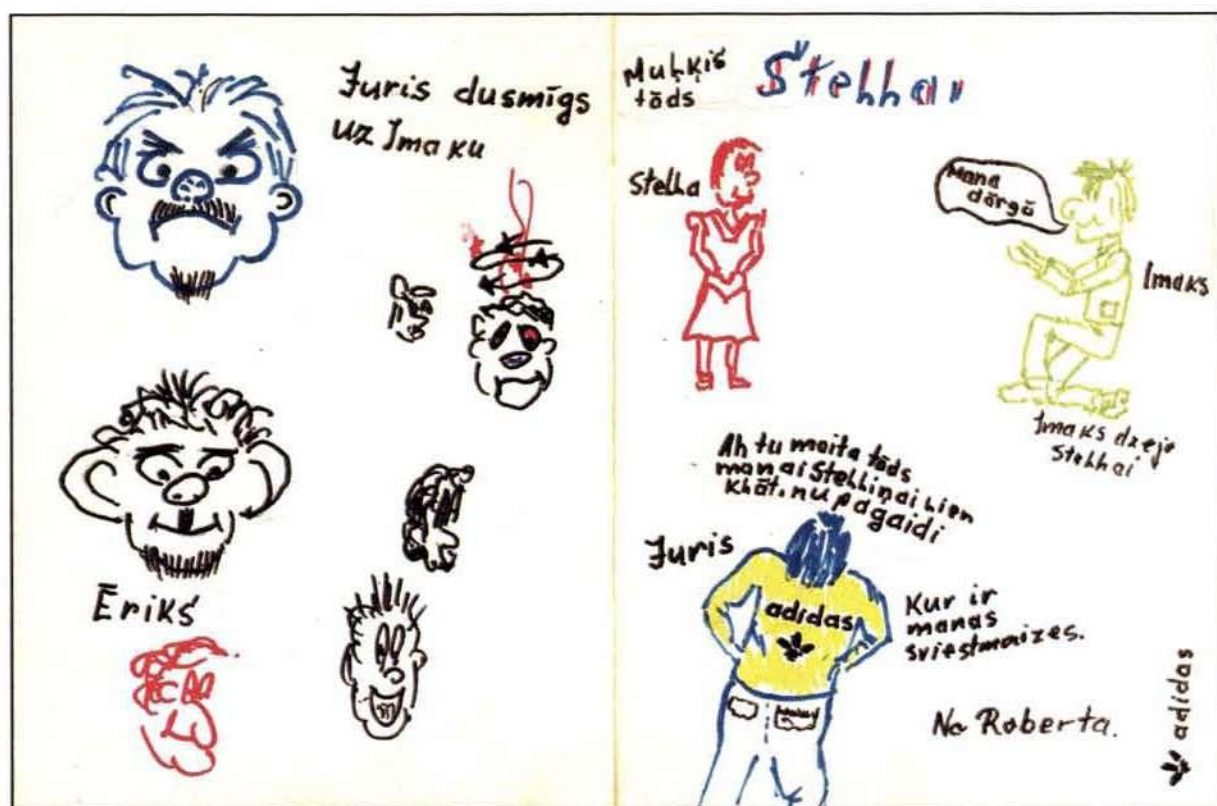 Juris dusmīgs
uz Imaku
Ēriks
Muļķis
tāds
Stellai
Stella
Mana
dārgā
Imaks
Imaks dzejo
Stellai
Ah tu maita tāds
manai Stelliņai lien
klāt. nu pagaidi
Juris
adidas
Kur ir
manas
sviestmaizes.
No Roberta.
adidas